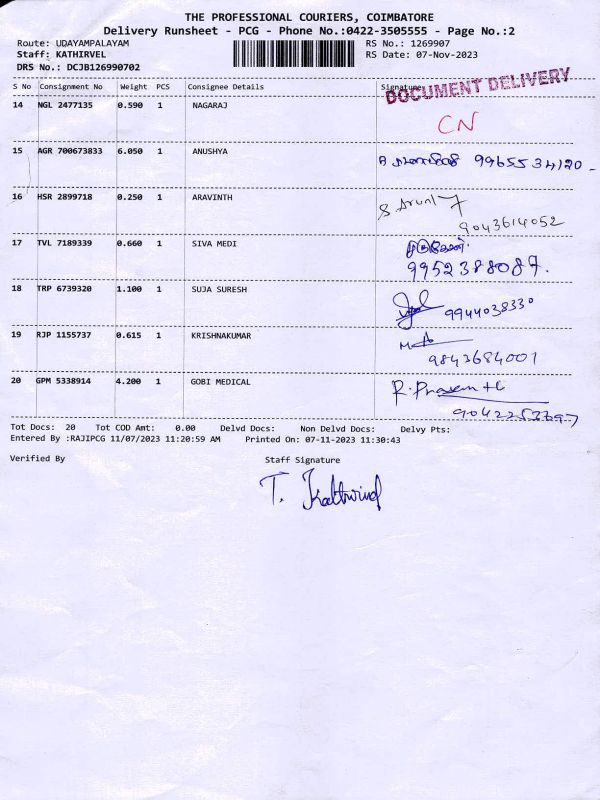 THE PROFESSIONAL COURIERS, COIMBATORE
Delivery Runsheet - PCG - Phone No.:0422-3505555 - Page No.:2
Route: UDAYAMPALAYAM RS No.: 1269907
Staff: KATHIRVEL RS Date: 07-Nov-2023
DRS No.: DCJB126990702
S No Consignment No Weight PCS Consignee Details Signature
DOCUMENT DELIVERY
14 NGL 2477135 0.590 1 NAGARAJ
CN
15 AGR 700673833 6.050 1 ANUSHYA
9965534120
16 HSR 2899718 0.250 1 ARAVINTH
S Arunl
9043614052
17 TVL 7189339 0.660 1 SIVA MEDI
9952388087.
18 TRP 6739320 1.100 1 SUJA SURESH
9944038330
19 RJP 1155737 0.615 1 KRISHNAKUMAR
9843684001
20 GPM 5338914 4.200 1 GOBI MEDICAL
R. Prasanth
Tot Docs: 20 Tot COD Amt: 0.00 Delvd Docs: Non Delvd Docs: Delvy Pts:
Entered By :RAJIPCG 11/07/2023 11:20:59 AM Printed On: 07-11-2023 11:30:43
Verified By Staff Signature
T. Kathirvel